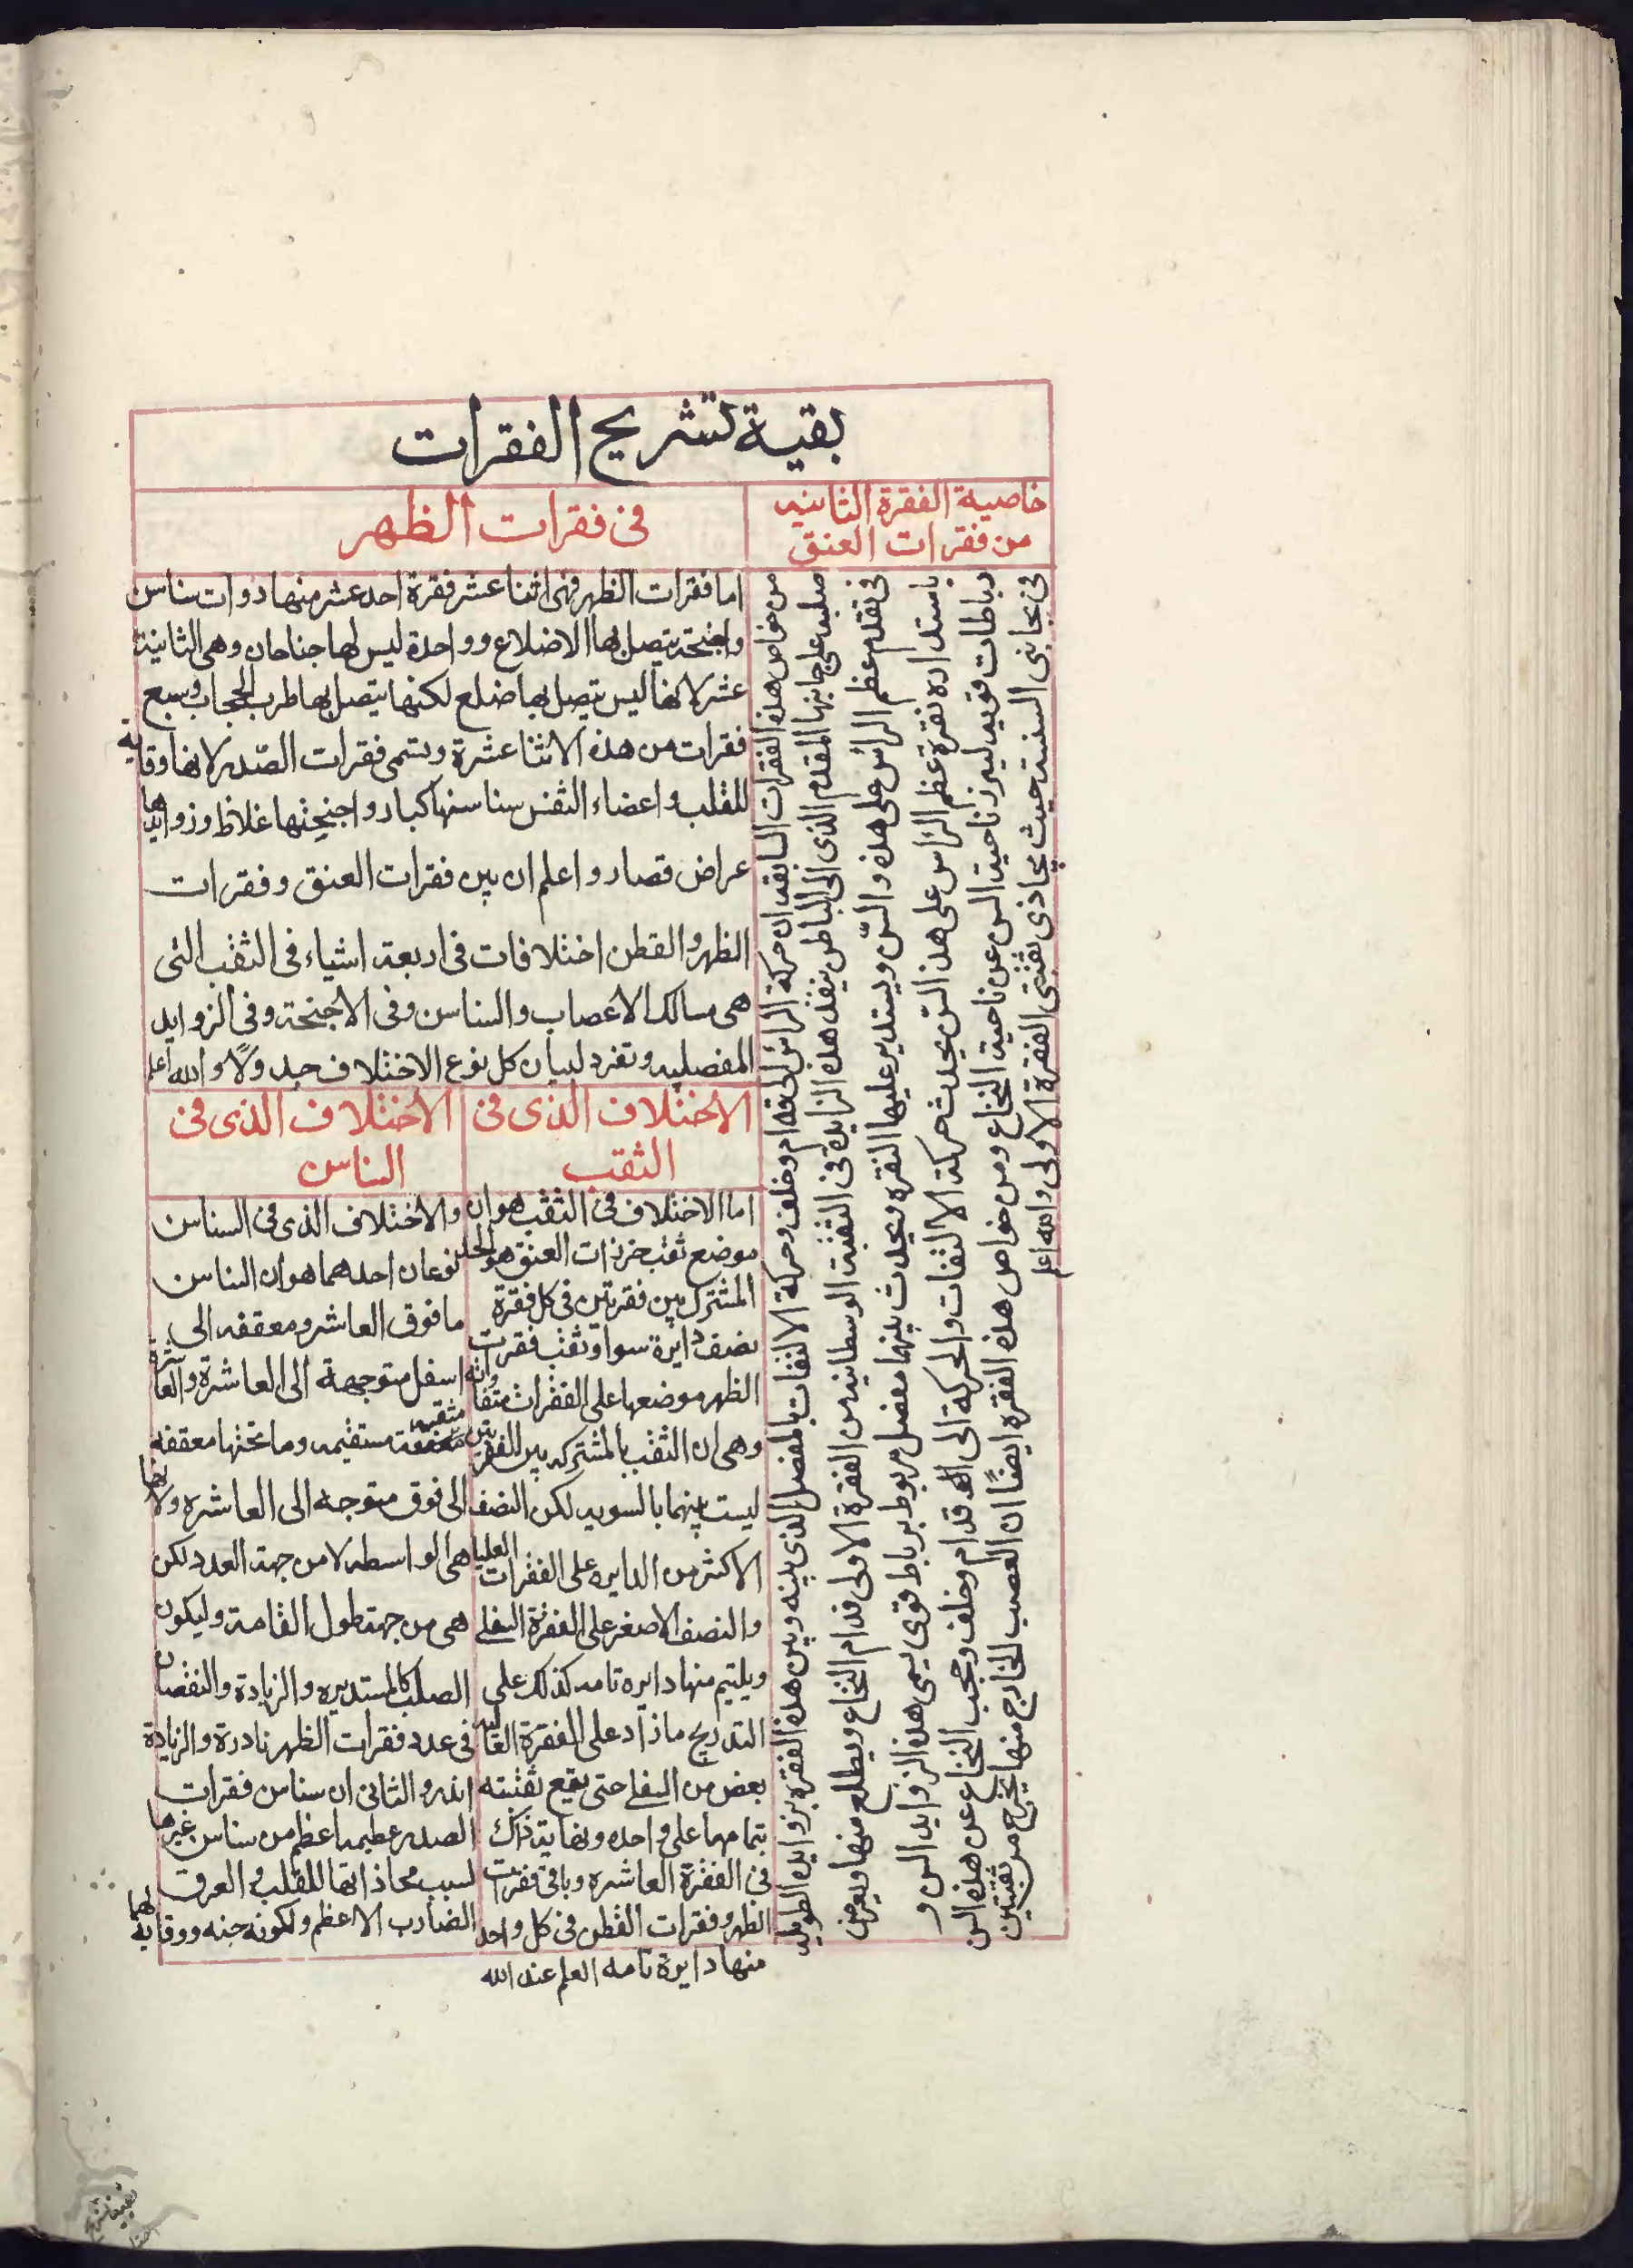 بقية تشريح الفقرات
خاصية الفقرة الثانيه
من فقرات العنق
من خواص هذه الفقرات السابقه ان حركة الراس لقدام وخلف وحركة الالتفات بالمفصل الذى بينه وبين هذه الفقره بزوايده الطويله
صلبه على جانبها المقدم الذى الى الباطن ينفذ هذه الزايده فى الثقبة الوسطانيه من الفقرة الاولى قدام النخاع ويطلع منها ويعرض
فى تقدم عظم الراس على هذه والسن ويستدير عليها النقره ويحدث بينهما مفصل مربوط برباط قوى يسمى هذه الزوايد السن و
باستداره نقرة عظم الراس على هذا السن يحدث حركة الالتفات والحركة الى قدام وخلف وحجب النخاع عن هذه السن
رباطات قويه ليبرز ناحية السن عن ناحية النخاع ومن خواص هذه الفقره ايضًا ان العصب الخارج منها يخرج من ثقبتين
فى جانبى السنسنة حيث يحاذى ثقبتى الفقرة الاولى والله اعلم
فى فقرات الظهر
اما فقرات الظهر فهى اثنا عشر فقرة احد عشر منها ذوات سناسن
واجنحة يتصل بها الاضلاع وواحدة ليس لها جناحان وهى الثانية
عشر لانها ليس يتصل بها ضلع لكنها يتصل بها طرب الحجاب وسبع
فقرات من هذه الاثنا عشرة وتسمى فقرات الصدر لانها وقايه
للقلب واعضاء التنفس سناسنها كبار واجنحتها غلاظ وزوايدها
عراض قصار واعلم ان بين فقرات العنق وفقرات
الظهر والقطن اختلافات فى اربعة اشياء فى الثقب التى
هى مسالك الاعصاب والسناسن وفى الاجنحة وفى الزوايد
المفصليه وتفرد لبيان كل نوع الاختلاف جدولًا والله اعلم
الاختلاف الذى فى
الثقب
اما الاختلاف فى الثقب هو ان
موضع ثقب خرزات العنق هو الحد
المشترك بين فقرتين فى كل فقرة
نصف دايرة سوا وثقب فقرات
الظهر موضعها على الفقرات متفاوته
وهى ان الثقب المشتركه بين الفقرتين
ليست بينهما بالسويه لكن النصف
الاكثر من الدايره على الفقرات العليا
والنصف الاصغر على الفقرة السفلى
ويلتيم منها دايره تامه كذلك على
التدريج ماذاد على الفقرة
بعض من السفلى حتى يقع ثقبته
بتمامها على واحده ونهاية ذلك
فى الفقرة العاشره وباقى فقرات
الظهر وفقرات القطن فى كل واحد
منها دايرة تامه العلم عند الله
الاختلاف الذى فى
السناسن
والاختلاف الذى فى السناسن
نوعان احدهما هو ان السناسن
ما فوق العاشر ومعقفه الى
اسفل متوجهة الى العاشرة والعاشرة
مستقيمه وما تحتها معقفه
الى فوق متوجه الى العاشره ولانها
هى الواسطه لا من جهة العدد لكن
هى من جهة طول القامة وليكون
الصلب كالمستديره والزيادة والنقصان
فى عدد فقرات الظهر نادرة والزيادة
اندر والثانى ان سناسن فقرات
الصدر عظيمه اعظم من سناسن غيرها
لسبب محاذاتها للقلب والعرق
الضارب الاعظم ولكونه جنه ووقاية لهما